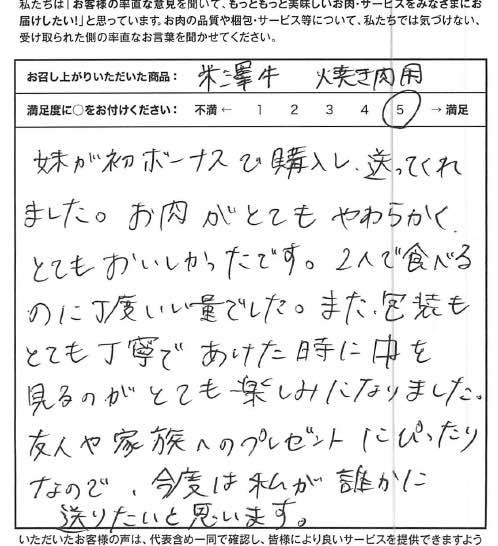 私たちは「お客様の率直な意見を聞いて、もっともっと美味しいお肉・サービスをみなさまにお
届けしたい!」と思っています。お肉の品質や梱包・サービス等について、私たちでは気づけない、
受け取られた側の率直なお言葉を聞かせてください。
お召し上がりいただいた商品: 米澤牛 焼き肉用
満足度に○をお付けください: 不満 ← 1 2 3 4 5 → 満足
妹が初ボーナスで購入し、送ってくれ
ました。お肉がとてもやわらかく、
とてもおいしかったです。2人で食べる
のに丁度いい量でした。また、包装も
とても丁寧であけた時に中を
見るのがとても楽しみになりました。
友人や家族へのプレゼントにぴったり
なので、今度は私が誰かに
送りたいと思います。
いただいたお客様の声は、代表含め一同で確認し、皆様により良いサービスを提供できますよう